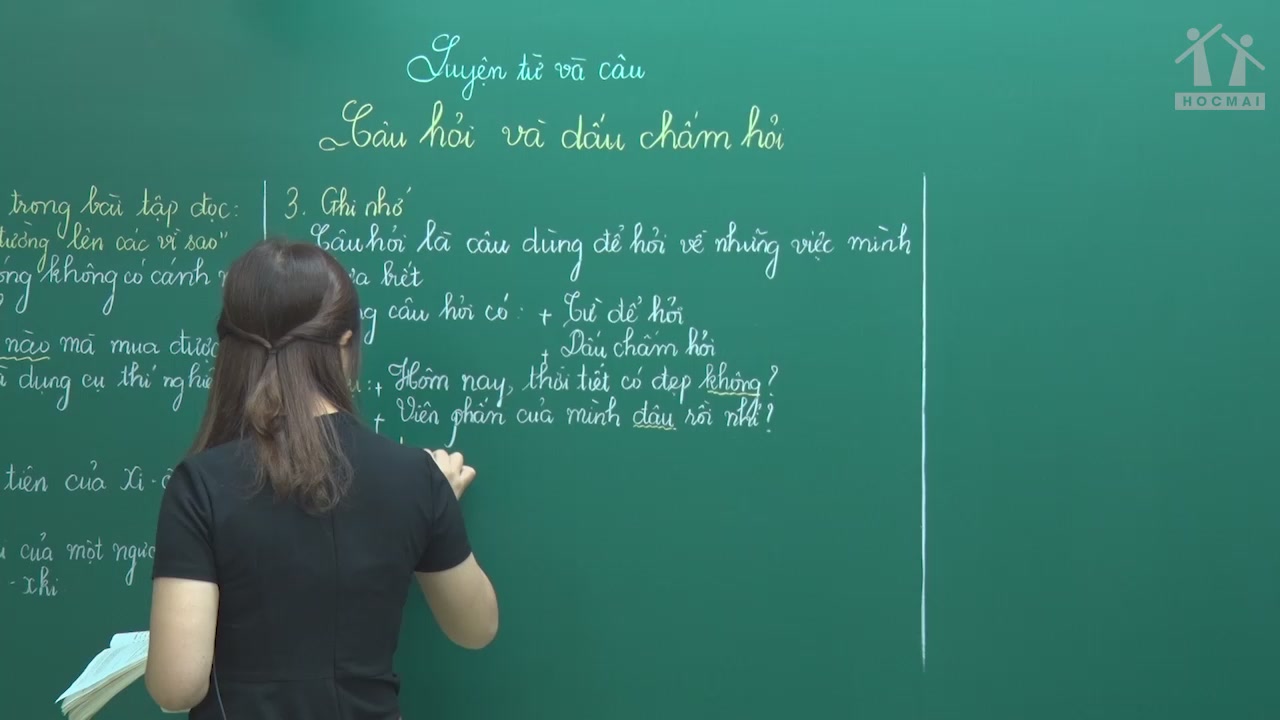 Luyện từ và câu
Câu hỏi và dấu chấm hỏi
HOCMAI
trong bài tập đọc:
tường lên các vì sao"
không có cánh
nào mà mua được
dụng cụ thí
tiên của Xi-
của một
-xki
3. Ghi nhớ
Câu hỏi là câu dùng để hỏi về những việc mình
biết
câu hỏi có: + Từ để hỏi
+ Dấu chấm hỏi
+ Hôm nay, thời tiết có đẹp không?
+ Viên phấn của mình đâu rồi nhỉ?